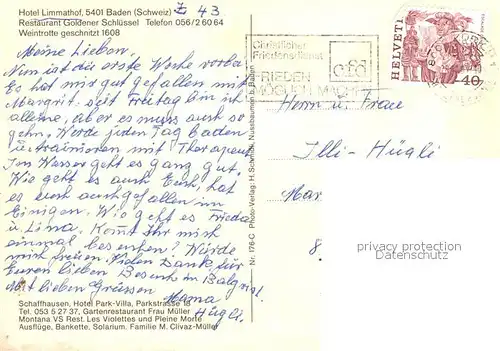 Hotel Limmathof, 5401 Baden (Schweiz)
Restaurant Goldener Schlüssel Telefon 056/2 60 64
Weintrotte geschnitzt 1608
Z 43
Meine Lieben,
Nun ist die erste Woche vorbei
Es hat mir gut gefallen mit
Margrit. seit Freitag bin ich
alleine, aber es muss auch so
gehn. Werde jeden Tag baden
u. trainieren mit Therapeut
Im Wasser geht es ganz gut,
Wie geht es auch Euch, hat
es Euch auch gefallen im
Einigen. Wie geht es Frieda
u. Lina. Kommt Ihr mich
einmal besuchen? Würde
mich freuen. Vielen Dank für
Euren lieben Besuch im Balgrist.
Mit lieben Grüssen
Mama
Hügli.
Schaffhausen, Hotel Park-Villa, Parkstrasse 18
Tel. 053 5 27 37, Gartenrestaurant Frau Müller
Montana VS Rest. Les Violettes und Pleine Morte
Ausflüge, Bankette, Solarium. Familie M. Clivaz-Müller
Nr. 176-C Photo-Verlag: H. Schmidt, Nussbaumen b. Baden
Christlicher
Friedensdienst
cfd
FRIEDEN
MÖGLICH MACHEN
HELVETIA
40
Herrn u. Frau
Illi-Hügli
Mar
8
privacy protection
Datenschutz